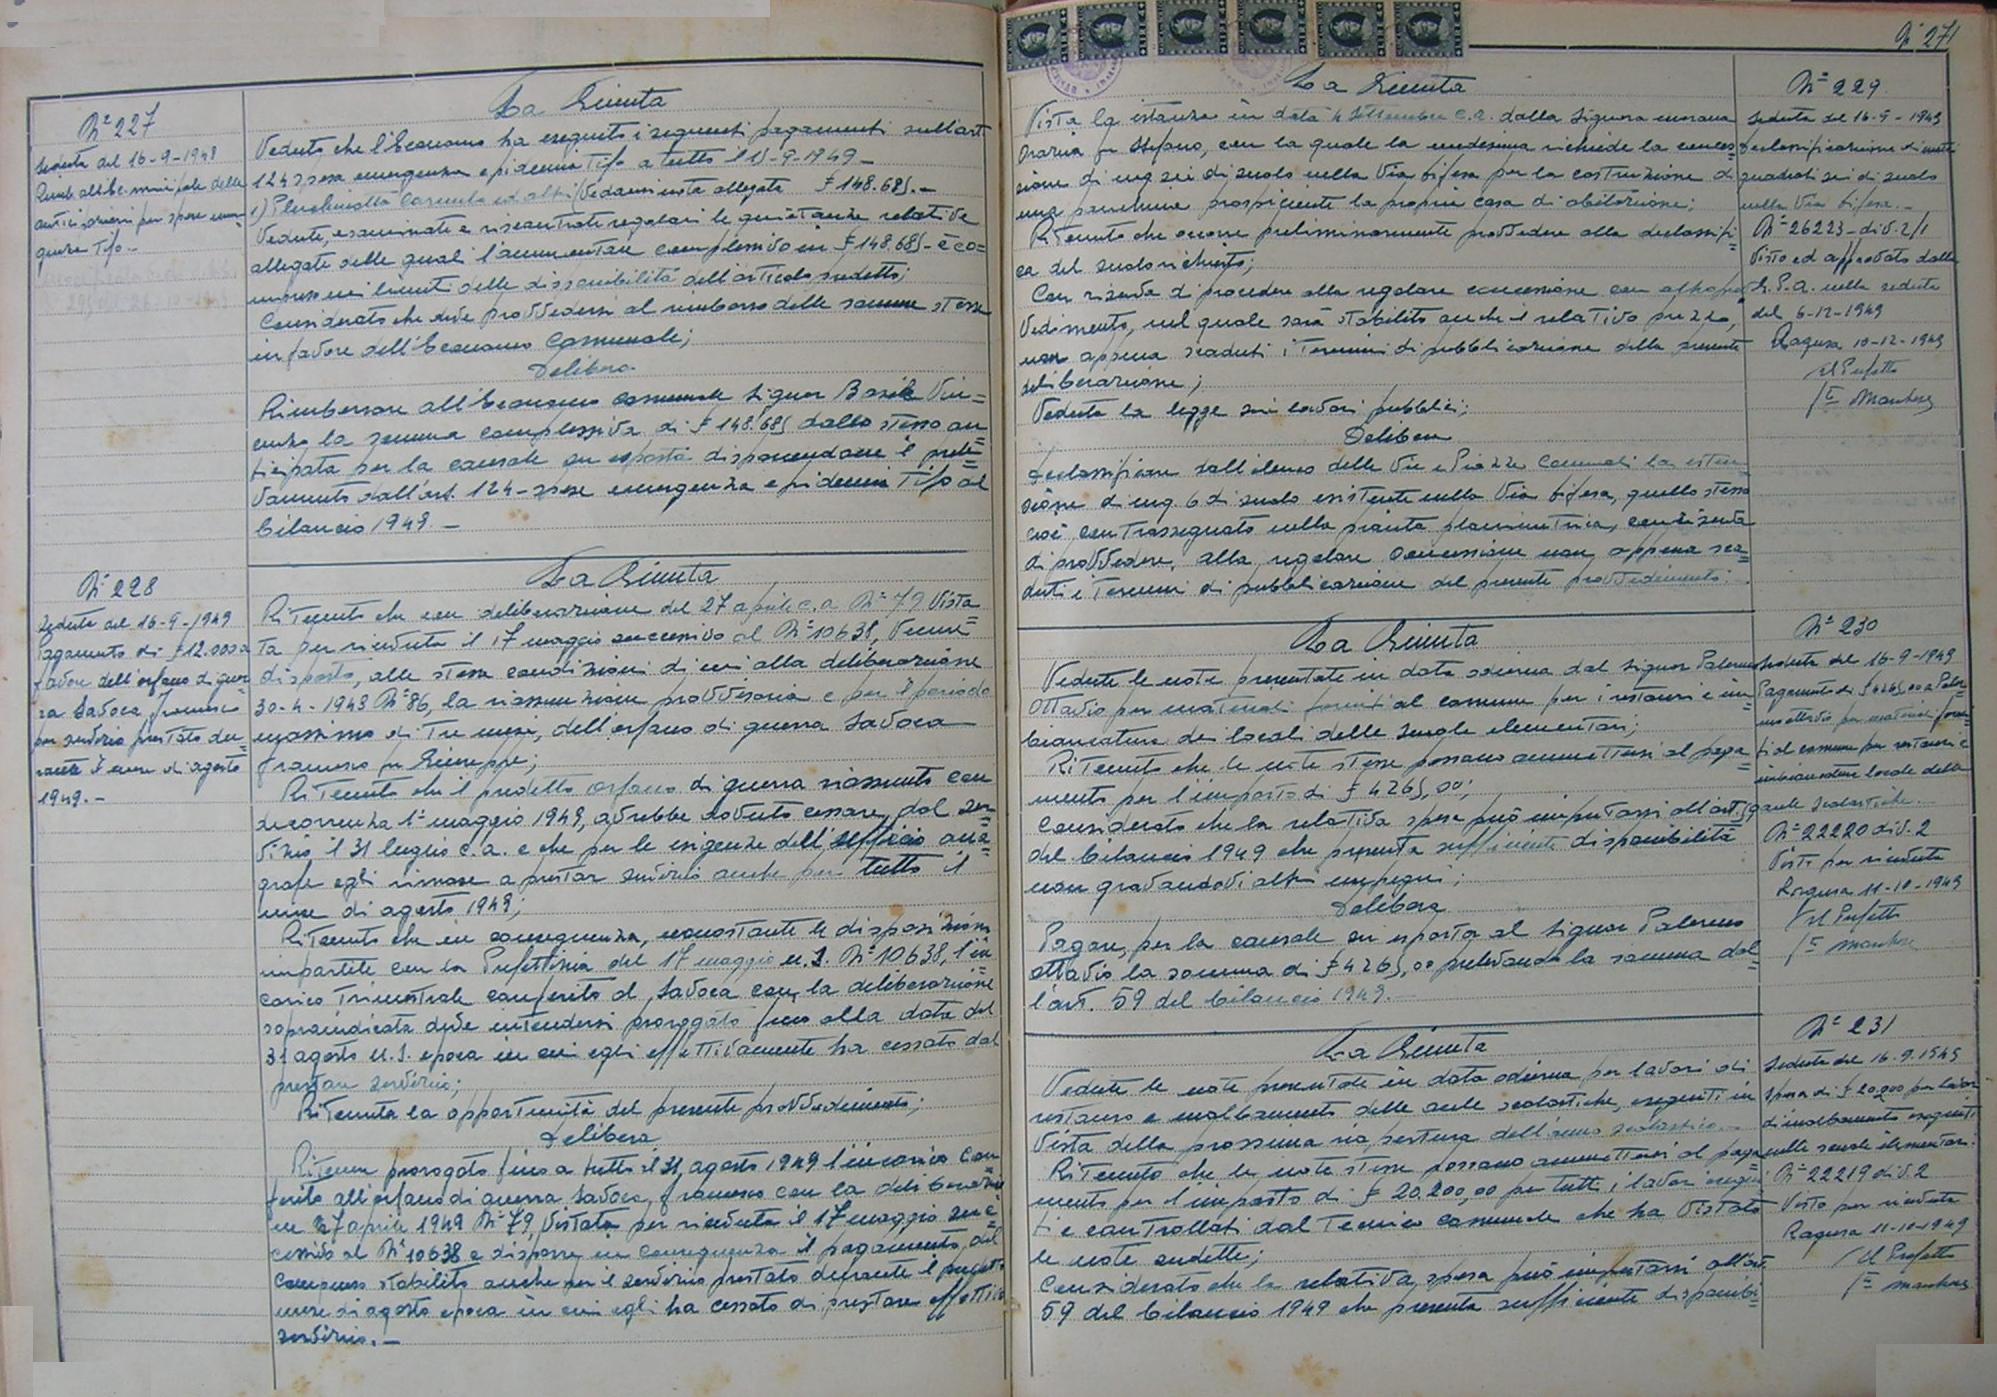 N° 227
Seduta del 16-9-1949
Rimb. all'Ec. municipale delle
anticipazioni per spese emer=
genza Tifo.-
La Giunta
Veduto che l'Economo ha eseguito i seguenti pagamenti sull'art.
124 spesa emergenza epidemia Tifo a tutto il 15-9-1949 -
1) Carmelo ed altri Vedasi nota allegata £ 148.685.-
Vedute, esaminate e riscontrate regolari le quietanze relative
allegate delle quali l'ammontare complessivo in £ 148.685- è co=
nei limiti delle disponibilità dell'articolo suddetto;
Considerato che deve provvedersi al rimborso delle somme stesse
in favore dell'Economo Comunale;
Delibera
Rimborsare all'Economo comunale Signor Basile Vin=
cenzo la somma complessiva di £ 148.685 dallo stesso an=
ticipata per la causale su esposta disponendone il prele=
vamento dall'art. 124 - spese emergenza epidemia Tifo al
bilancio 1949. -
N° 228
Seduta del 16-9-1949
Pagamento di £ 12.000 a
favore dell'orfano di guer
ra Savoca Francesco
per servizio prestato du=
rante il mese di agosto
1949.-
La Giunta
Ritenuto che con deliberazione del 27 aprile c.a. N° 79 Vista
ta per ricevuta il 17 maggio successivo al N° 10638, venne
disposto, alle stesse condizioni di cui alla deliberazione
30-4-1948 N° 86, la riassunzione provvisoria e per il periodo
massimo di Tre mesi, dell'orfano di guerra Savoca
Francesco fu Giuseppe;
Ritenuto che il predetto orfano di guerra riassunto con
decorrenza 1° maggio 1949, avrebbe dovuto cessare dal ser=
vizio il 31 luglio c.a. e che per le esigenze dell'Ufficio ana=
grafe egli rimase a prestar servizio anche per tutto il
mese di agosto 1949;
Ritenuto che in conseguenza, nonostante le disposizioni
impartite con la Prefettizia del 17 maggio u.s. N° 10638, l'in=
carico Trimestrale conferito al Savoca con la deliberazione
sopraindicata deve intendersi prorogato fino alla data del
31 agosto u.s. epoca in cui egli effettivamente ha cessato dal
prestare servizio;
Ritenuta la opportunità del presente provvedimento;
Delibera
Ritenere prorogato fino a tutto il 31 agosto 1949 l'incarico con=
ferito all'orfano di guerra Savoca Francesco con la deliberazio
ne 27 aprile 1949 N° 79, Vistata per ricevuta il 17 maggio suc=
cessivo al N° 10638 e disporre in conseguenza il pagamento del
compenso stabilito anche per il servizio prestato durante il
mese di agosto epoca in cui egli ha cessato di prestare effettivo
servizio.-
271
La Giunta
Vista la istanza in data 4 Settembre c.a. dalla Signora
Maria fu Stefano, con la quale la medesima richiede la conces=
sione di mq sei di suolo nella Via Bifera per la costruzione di
una prospiciente la propria casa di abitazione;
Ritenuto che occorre preliminarmente provvedere alla declassifi=
ca del suolo richiesto;
Con riserva di procedere alla regolare concessione con altro prov
vedimento, nel quale sarà stabilito anche il relativo prezzo,
non appena scaduti i Termini di pubblicazione della presente
deliberazione;
Veduta la legge sui lavori pubblici;
Delibera
declassificare dall'elenco delle Vie e Piazze Comunali la esten=
sione di mq. 6 di suolo esistente nella Via Bifera, quello stesso
cioè contrassegnato nella pianta planimetrica, con riserva
di provvedere, alla regolare concessione non appena sca=
duti i Termini di pubblicazione del presente provvedimento.
N° 229
Seduta del 16-9-1949
Declassificazione di metri
quadrati sei di suolo
nella Via Bifera.-
N° 26223-div. 2/1
Visto ed approvato dalla
G.P.A. nella seduta
del 6-12-1949
Ragusa 10-12-1949
Il Prefetto
La Giunta
Vedute le note presentate in data odierna dal Signor Palermo
Ottavio per materiali forniti al comune per i restauri e im=
biancatura dei locali delle Scuole elementari;
Ritenuto che le note stesse possano ammettersi al paga=
mento per l'importo di £ 4265,00;
Considerato che la relativa spesa può imputarsi all'art. 59
del bilancio 1949 che presenta sufficiente disponibilità
non gravandovi altri impegni;
Delibera
Pagare, per la causale su esposta al Signor Palermo
Ottavio la somma di £ 4265,00 prelevando la somma dal=
l'art. 59 del bilancio 1949.-
N° 230
Seduta del 16-9-1949
Pagamento di £ 4265,00 a Paler=
mo Ottavio per materiali forni=
ti al comune per restauri e
imbiancatura locale delle
aule scolastiche.-
N° 22220 div. 2
Visto per ricevuta
Ragusa 11-10-1949
Il Prefetto
La Giunta
Vedute le note presentate in data odierna per lavori di
restauro e imbiancamento delle aule scolastiche, eseguiti in
vista della prossima riapertura dell'anno scolastico.-
Ritenuto che le note stesse possano ammettersi al paga=
mento per l'importo di £ 20.200,00 per tutti i lavori esegui
ti e controllati dal Tecnico comunale che ha Vistato
le note suddette;
Considerato che la relativa spesa può imputarsi all'art.
59 del bilancio 1949 che presenta sufficiente disponibi=
N° 231
Seduta del 16-9-1949
Spesa di £ 20.200 per lavori
di imbiancamento eseguiti
nelle scuole elementari.
N° 22219 div. 2
Visto per ricevuta
Ragusa 11-10-1949
Il Prefetto